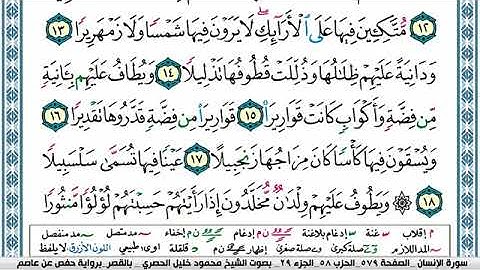 ١٢ مُّتَّكِـِٔينَ فِيهَا عَلَى ٱلْأَرَآئِكِ لَا يَرَوْنَ فِيهَا شَمْسًا وَلَا زَمْهَرِيرًا ١٣
وَدَانِيَةً عَلَيْهِمْ ظِلَـٰلُهَا وَذُلِّلَتْ قُطُوفُهَا تَذْلِيلًا ١٤ وَيُطَافُ عَلَيْهِم بِـَٔانِيَةٍ
مِّن فِضَّةٍ وَأَكْوَابٍ كَانَتْ قَوَارِيرَا۠ ١٥ قَوَارِيرَا۟ مِن فِضَّةٍ قَدَّرُوهَا تَقْدِيرًا ١٦
وَيُسْقَوْنَ فِيهَا كَأْسًا كَانَ مِزَاجُهَا زَنجَبِيلًا ١٧ عَيْنًا فِيهَا تُسَمَّىٰ سَلْسَبِيلًا
١٨ ۞ وَيَطُوفُ عَلَيْهِمْ وِلْدَٰنٌ مُّخَلَّدُونَ إِذَا رَأَيْتَهُمْ حَسِبْتَهُمْ لُؤْلُؤًا مَّنثُورًا
إقلاب غنة إدغام بلاغنة ن م إدغام ن م إخفاء مدمتصل مدمنفصل
المداللازم صلة كبرى صلة صغرى ن م إظهار قلقلة اوى طبيعي اللون الأزرق لا يلفظ
سورة الإنسان _ الصفحة ٥٧٩ _ الحزب ٥٨ _ الجزء ٢٩ _ بصوت الشيخ محمود خليل الحصري _ بالقصر _ برواية حفص عن عاصم